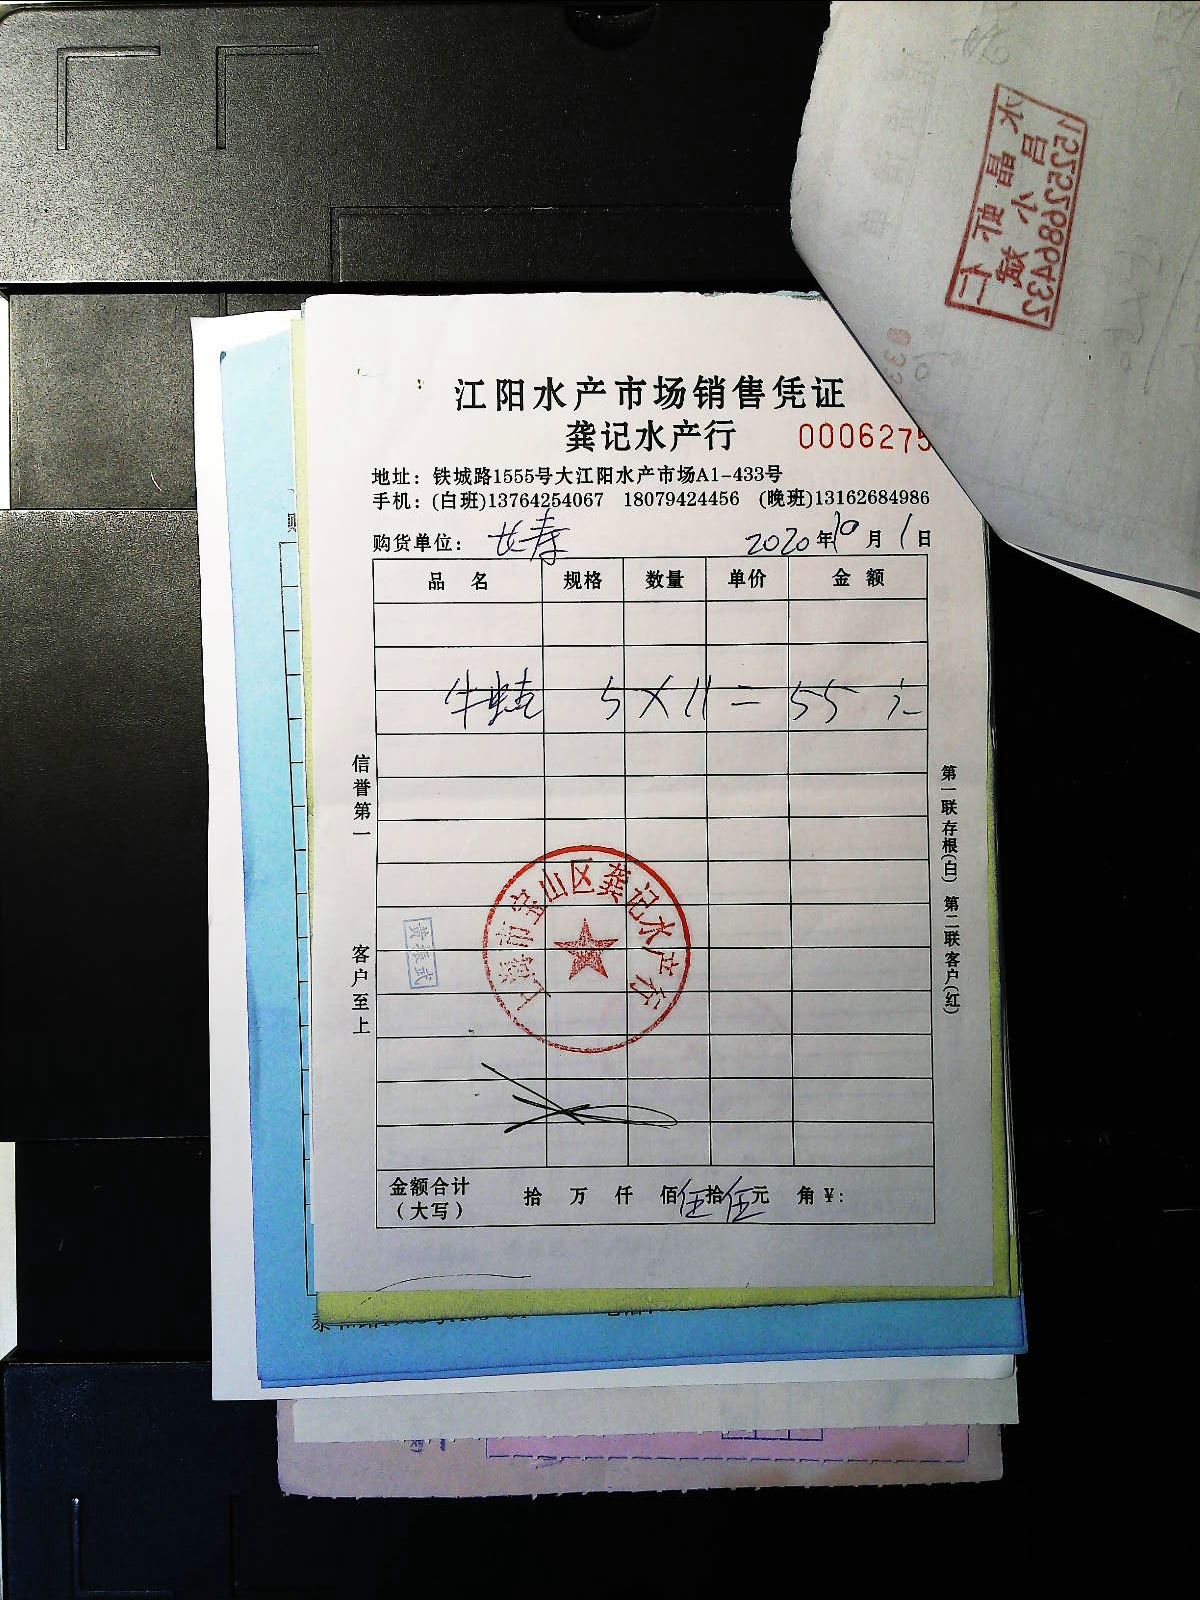 江阳水产市场销售凭证
龚记水产行 0006275
地址：铁城路1555号大江阳水产市场A1-433号
手机：(白班)13764254067 18079424456 (晚班)13162684986
购货单位： 长寿 2020年10月1日
品名 规格 数量 单价 金额
牛蛙 5×11=55元
信誉第一
客户至上
第一联存根(白) 第二联客户(红)
上海市宝山区龚记水产行
金额合计 拾 万 仟 佰伍拾伍元 角 ¥:
(大写)
15225286432